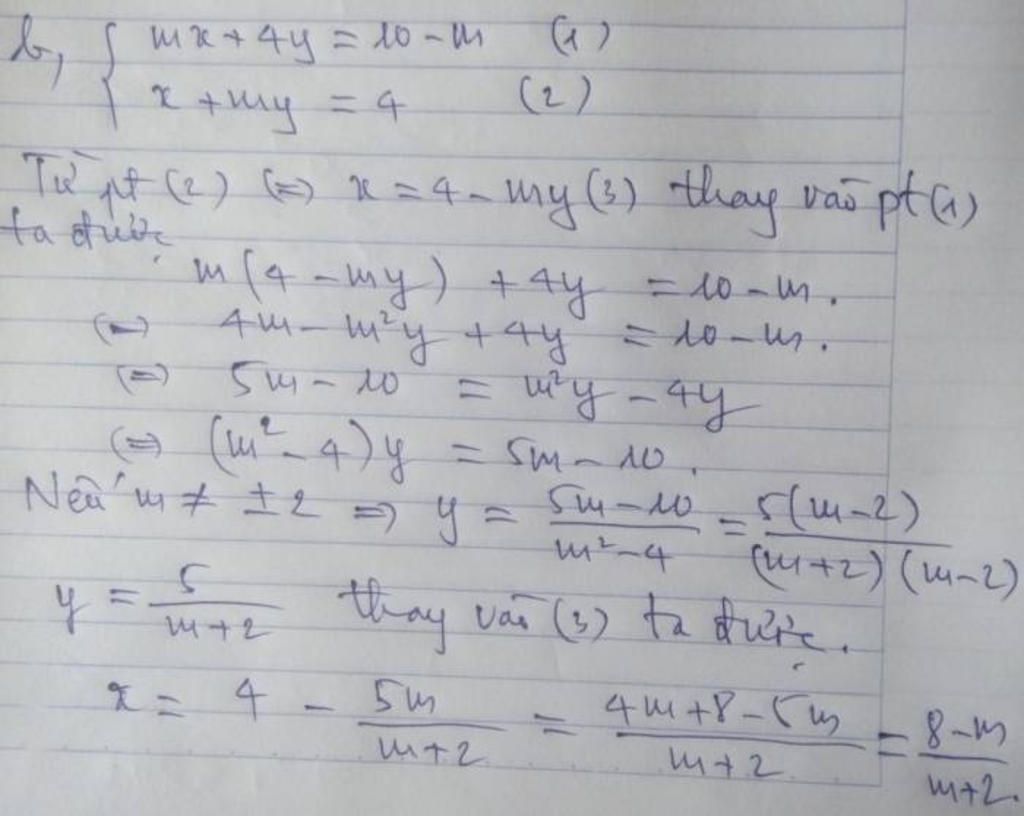 b, { mx + 4y = 10 - m (1)
x + my = 4 (2)
Từ pt (2) (=) x = 4 - my (3) thay vào pt (1)
ta được
m(4 - my) + 4y = 10 - m.
(=) 4m - m²y + 4y = 10 - m.
(=) 5m - 10 = m²y - 4y
(=) (m² - 4)y = 5m - 10.
Nếu m ≠ ±2 => y = (5m - 10)/(m² - 4) = 5(m - 2)/((m + 2)(m - 2))
y = 5/(m + 2) thay vào (3) ta được.
x = 4 - 5m/(m + 2) = (4m + 8 - 5m)/(m + 2) = (8 - m)/(m + 2).